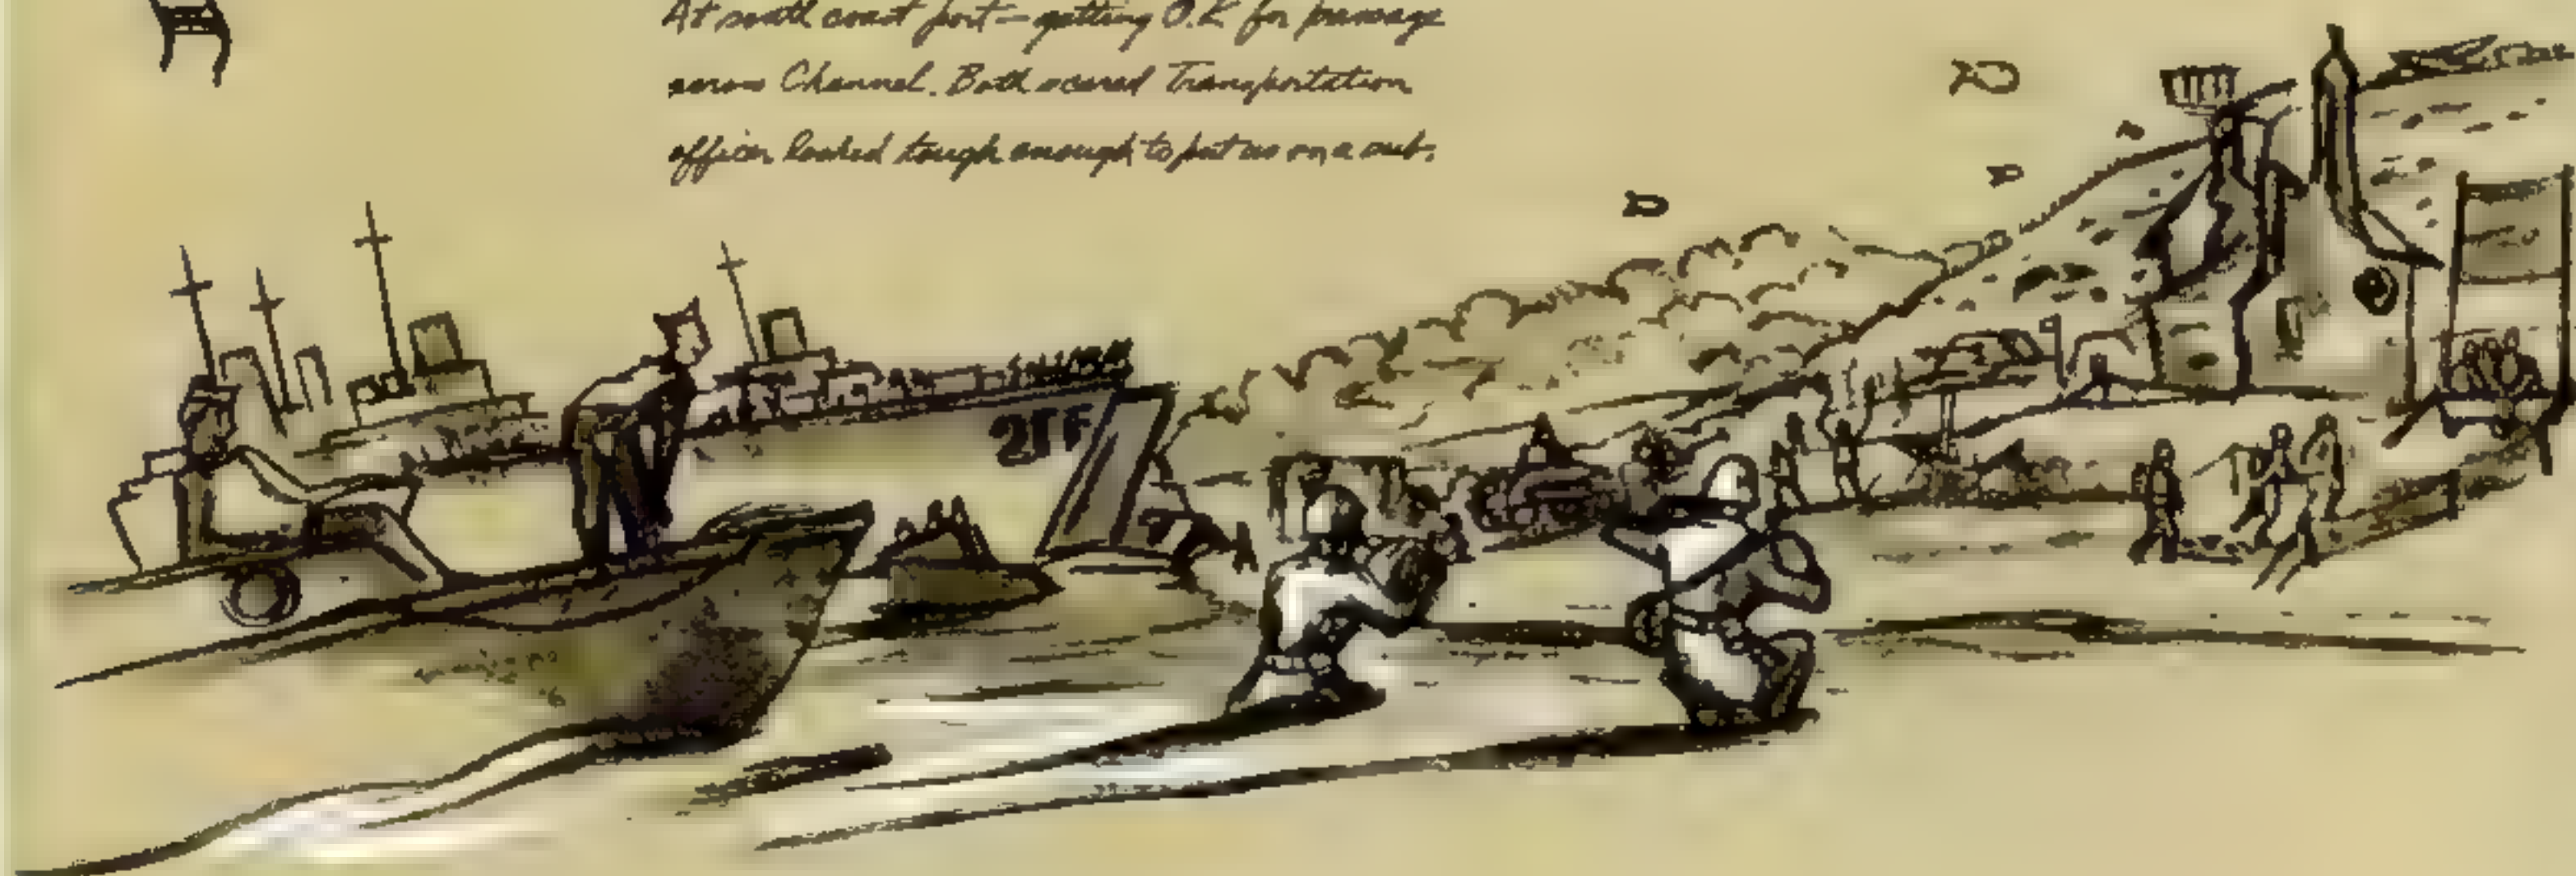 At south coast port - getting O.K for passage
across Channel. Both scared Transportation
officer looked tough enough to put us on a sub.